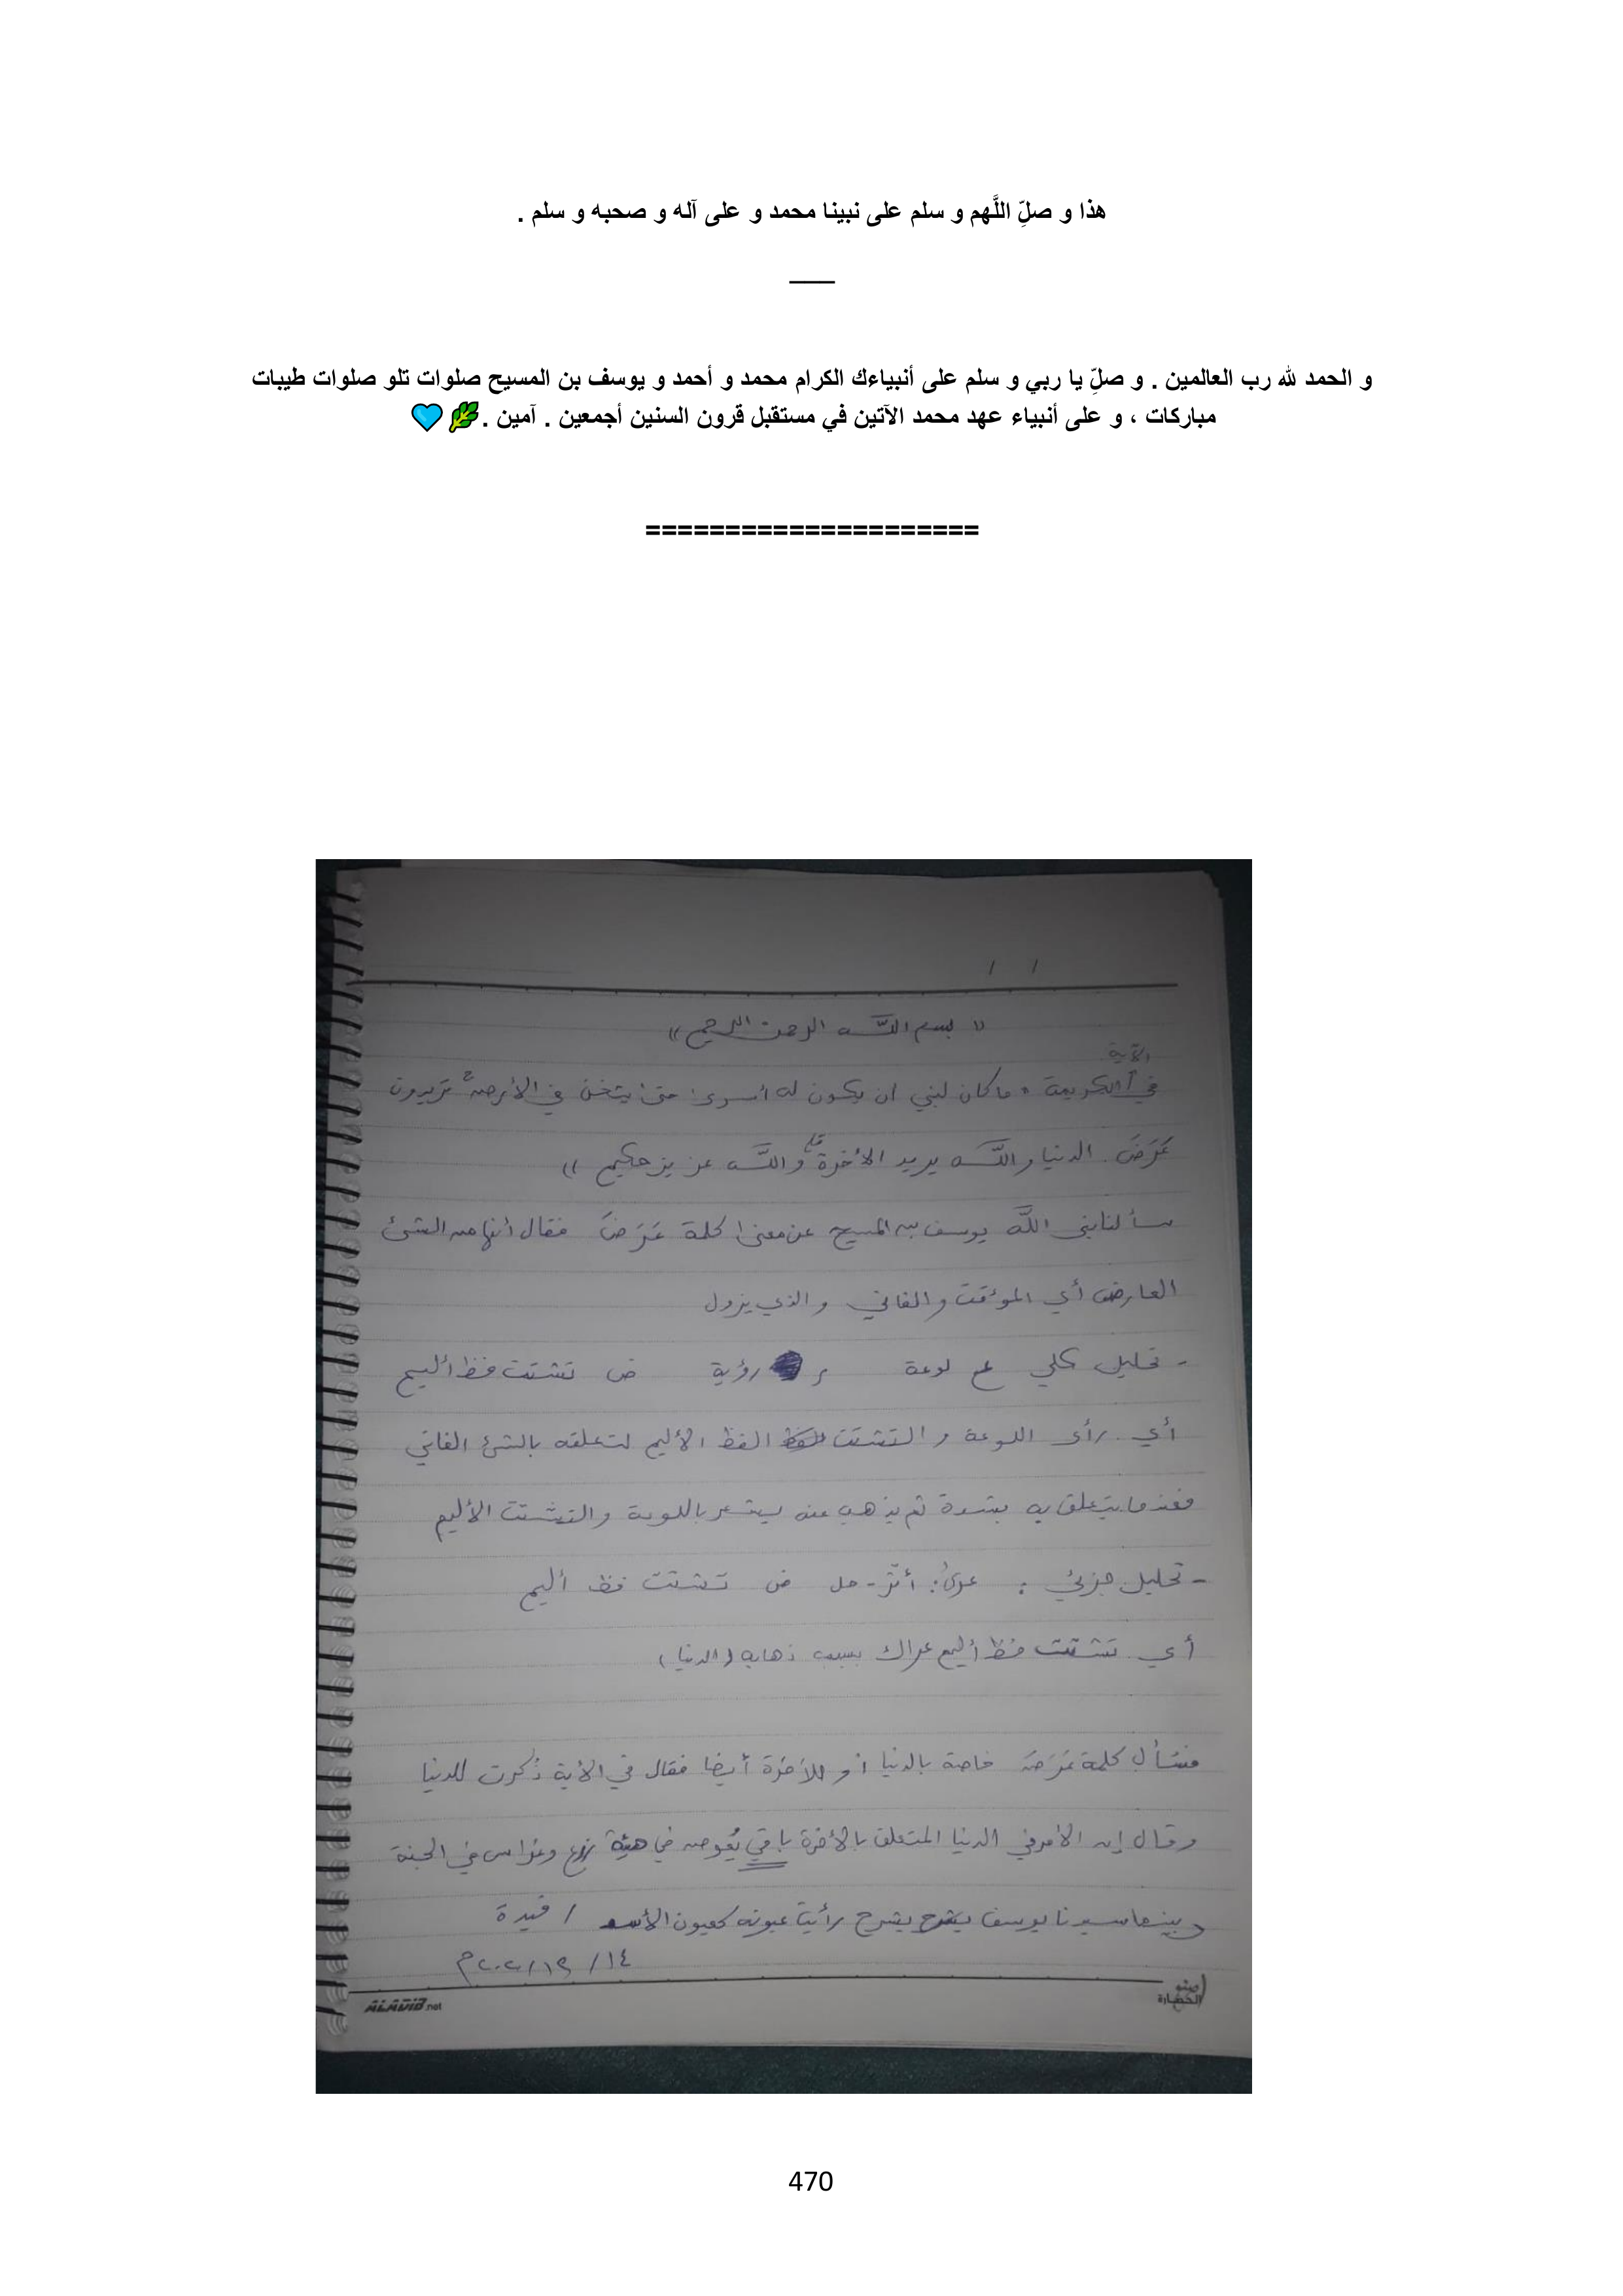 هذا و صلِّ اللَّهم و سلم على نبينا محمد و على آله و صحبه و سلم .
و الحمد لله رب العالمين . و صلِّ يا ربي و سلم على أنبياءك الكرام محمد و أحمد و يوسف بن المسيح صلوات تلو صلوات طيبات
مباركات ، و على أنبياء عهد محمد الآتين في مستقبل قرون السنين أجمعين . آمين .🌿💙
=====================
/ /
(( بسم اللَّه الرحمن الرحيم ))
الآية
في الكريمة " ما كان لنبي ان يكون له أسرى حتى يثخن في الأرض تريدون
عَرَضَ الدنيا واللَّه يريد الأخرة واللَّه عزيز حكيم ))
سألنا نبي اللَّه يوسف بن المسيح عن معنى كلمة عَرَضَ فقال أنها من الشئ
العارض أي المؤقت والفاني والذي يزول
- تحليل كلي ع لوعة ر رؤية ض تشتت فظ أليم
أي رأى اللوعة و التشتت الفظ الأليم لتعلقه بالشئ الفاني
فعندما يتعلق به بشدة ثم يذهب عنه يشعر باللوعة والتشتت الأليم
- تحليل جزئي : عرىٰ: أثر - حل ض تشتت فظ أليم
أي تشتت فظ أليم عراك بسبب ذهاب (الدنيا)
كلمة عَرَضَ خاصة بالدنيا أو للآخرة أيضا فقال في الأية ذُكرت للدنيا
وقال إن الأمر في الدنيا المتعلق بالأخرة باقي يُعوض في هيئة زرع وغراس في الجنة
وبينما سيدنا يوسف يشرح رأيت عيونه كعيون الأسد /
١٤ / ١٢ / ٢٠٢ م
ALADIB.net
صنو
الحضارة
470